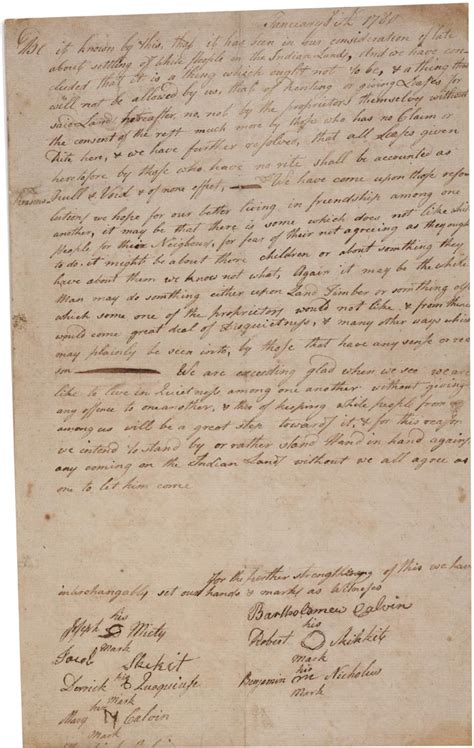 January 8th 1780
Be it known by this, that it has been in our consideration of late
about settling of White People in the Indian Lands, And we have con
cluded that It is a thing which ought not to be, & a thing that
will not be allowed by us, that of Renting or giving Leases for
said Land hereafter, no, not by the proprietors themselves without
the consent of the rest much more by those who has no Claim or
Rite here, & we have further resolves, that all Leases given
heretofore by those who have no rite shall be accounted as
Null & Void & of none effect, We have come upon those reso
lutions we hope for our better living in friendship among one
another, it may be that there is some which does not like white
people for their Neighbours, for fear of their not agreeing as they ought
to do. it might be about there children or about somthing they
have about them we know not what, Again it may be the white
Man may do somthing either upon Land Timber or somthing else
which some one of the proprietors would not like & from thence
would come great deal of Disquietness, & many other ways which
may plainly be seen into, by those that have any sense or rea
son We are exceeding glad when we see we are
like to live in Quietness among one another without giving
any offence to one another, & this of keeping white people from
among us will be a great step toward it, & for this reason
we intend to stand by or rather stand Hand in hand against
any coming on the Indian Land without we all agree as
one to let him come
For the further strengthening of this we have
interchangably set our hands & marks as Witnesses
Bartholomew Calvin
Joseph his Micty
mark
Robert his Skikkit
Mark
Jacob Skekit
Derrick his Quaquiuse
Mark
Benjamin his Nicholus
Mark
Mary her Calvin
Mark